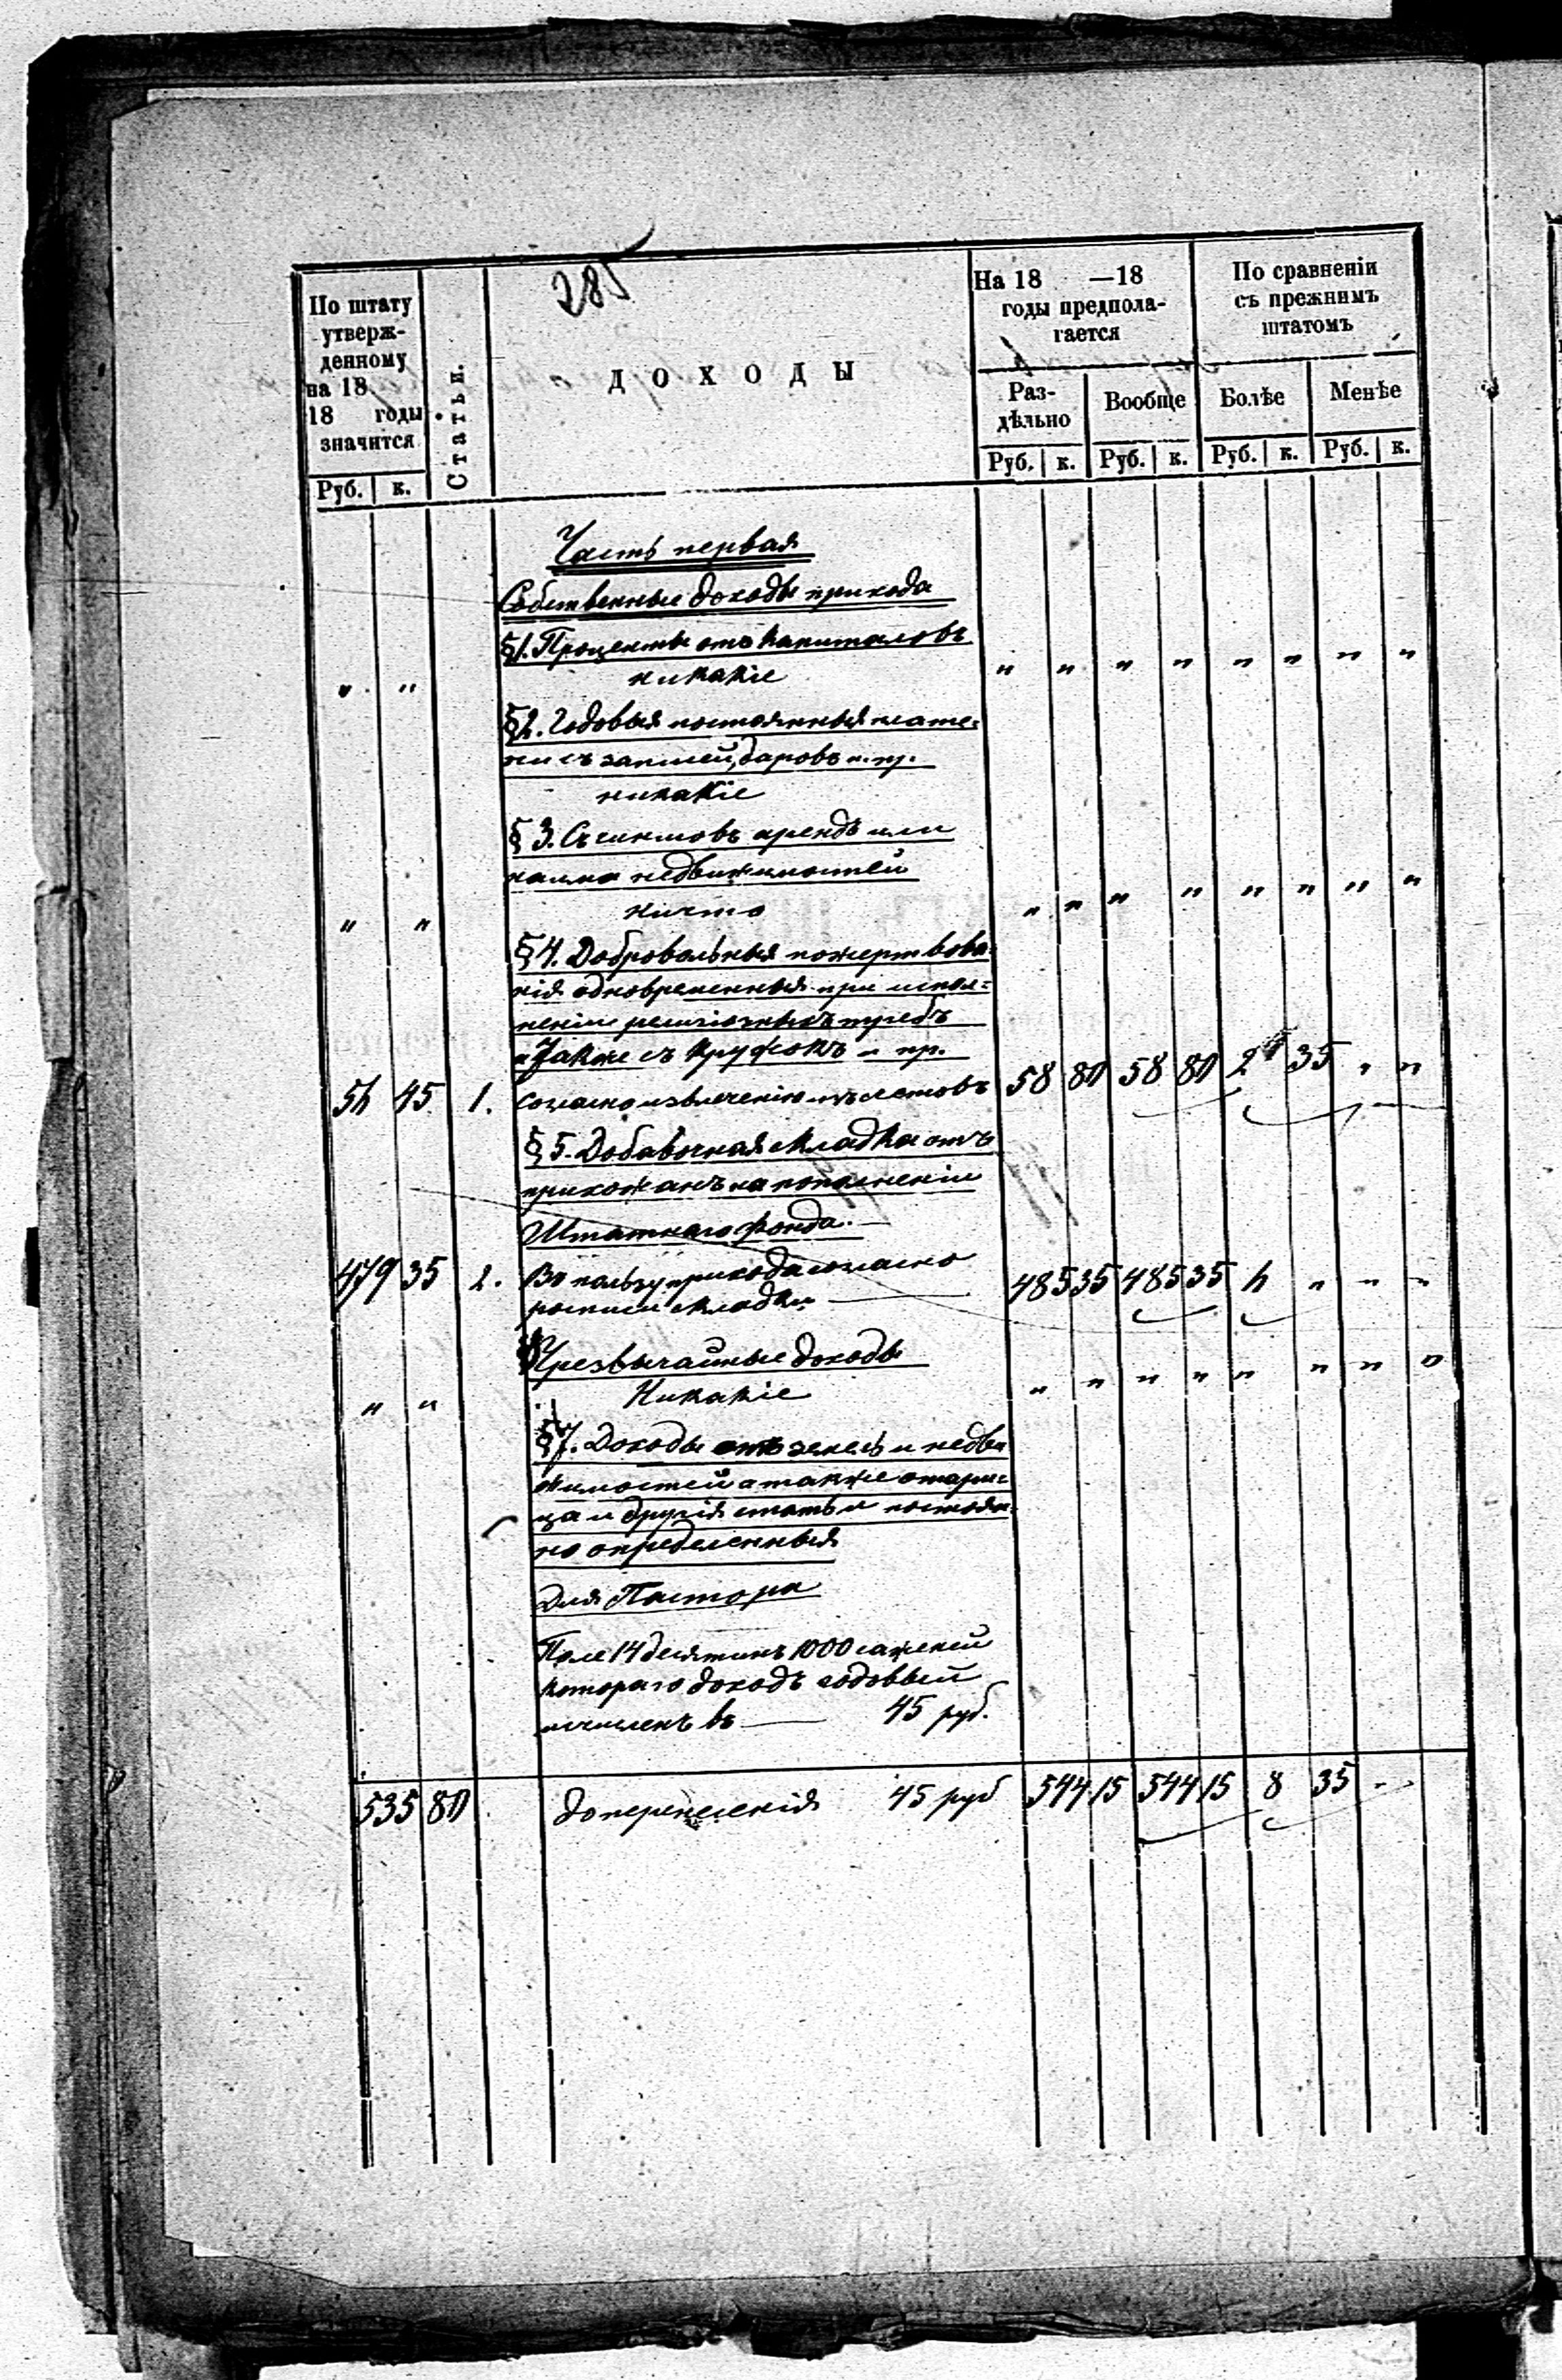 285
По штату
утверж-
денному
на 18
18 годы
значится
Статьи.
ДОХОДЫ
На 18 —18
годы предпола-
гается
По сравненіи
съ прежнимъ
штатомъ
Раз-
дѣльно
Вообще
Болѣе
Менѣе
Руб. к. Руб. к. Руб. к. Руб. к. Руб. к.
Часть первая
Собственные доходы прихода
§1. Проценты отъ капиталовъ
" " никакіе " " " " " " " "
§2. Годовыя постоянныя плате-
жи съ записей, даровъ и. пр.
никакіе
§ 3. Съ чиншовъ арендъ или
найма недвижимостей
" " ничто " " " " " " " "
§ 4. Добровольныя пожертвова-
нія одновременныя при испол-
неніи религіозныхъ требъ
также съ кружокъ и пр.
45 1. согласно извлеченію изъ счетовъ 58 80 58 80 2 35 " "
§ 5. Добавочная складка отъ
прихожанъ на пополненіи
Штатнаго фонда.—
479 35 2. Въ пользу прихода согласно
росписи складки — 485 35 485 35 " " "
Чрезвычайные доходы
" " Никакіе " " " " " " " "
§7. Доходы отъ земель и недви
жимостей а также
и другія статьи постоян-
но определенныя
Для Пастора
Поле 14 десятинъ 1000 саженей
котораго доходъ годовый
исчисленъ въ — 45 руб.
535 80 до перенесенія 45 руб 544 15 544 15 8 35 " "